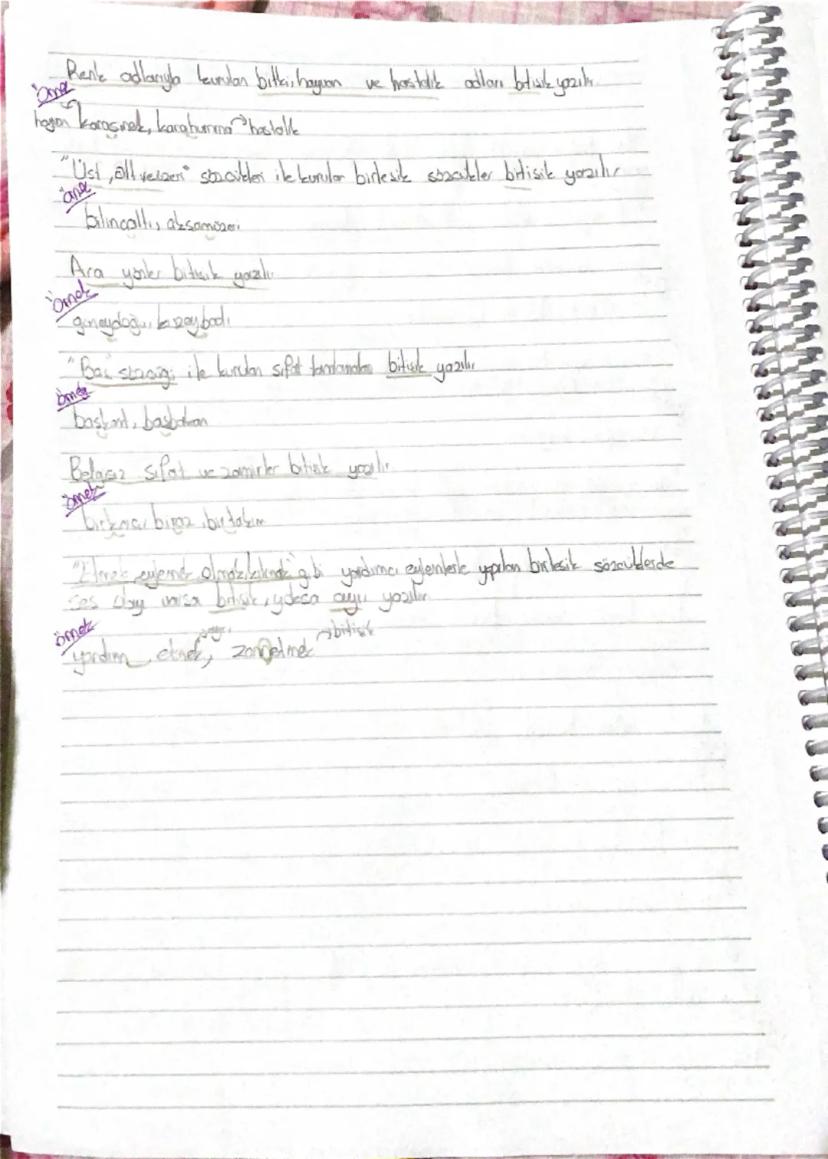 Renk adlarıyla kurulan bitki, hayvan ve hastalık adları bitişik yazılır.
Örnek
hayvan karasinek, karahumma → hastalık
"Üst, alt ve üzeri" sözcükleri ile kurulan birleşik sözcükler bitişik yazılır
örnek
bilinçaltı, akşamüzeri
Ara yönler bitişik yazılır.
Örnek
güneydoğu, kuzeybatı
"Baş" sözcüğü ile kurulan sıfat tamlamaları bitişik yazılır
örnek
başkent, başbakan
Belgisiz sıfat ve zamirler bitişik yazılır.
örnek
birkaçı, biraz, birtakım
"Etmek, eylemek, olmak, kılmak" gibi yardımcı eylemlerle yapılan birleşik sözcüklerde
ses olayı varsa bitişik, yoksa ayrı yazılır
örnek
yardım etmek, zannetmek → bitişik